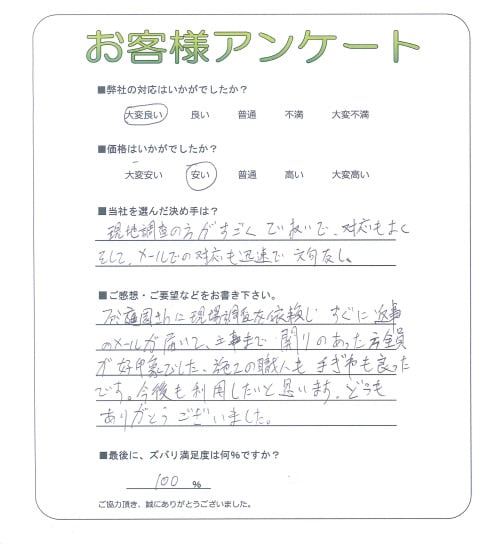 お客様アンケート
■弊社の対応はいかがでしたか?
大変良い 良い 普通 不満 大変不満
■価格はいかがでしたか?
大変安い 安い 普通 高い 大変高い
■当社を選んだ決め手は?
現地調査の方がすごくていねいで、対応もよく
そして、メールでの対応も迅速で文句なし。
■ご感想・ご要望などをお書き下さい。
庭園さんに現場調査を依頼し すぐに返事
のメールが届いて、工事まで 関りのあった方全員
が好印象でした、施工の職人も 手ぎわも良った
です。今後も利用したいと思います。どうも
ありがとうございました。
■最後に、ズバリ満足度は何%ですか?
100 %
ご協力頂き、誠にありがとうございました。